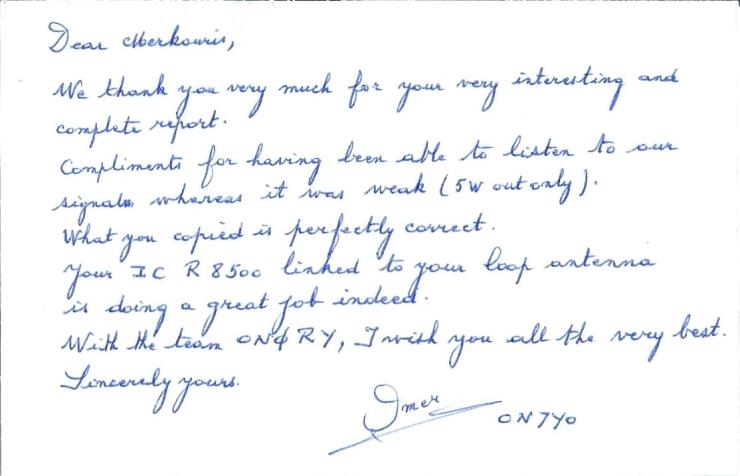 Dear Merkouris,
We thank you very much for your very interesting and
complete report.
Compliments for having been able to listen to our
signals whereas it was weak (5W out only).
What you copied is perfectly correct.
Your IC R 8500 linked to your loop antenna
is doing a great job indeed.
With the team ONØRY, I wish you all the very best.
Sincerely yours.
Omer
ON7YO